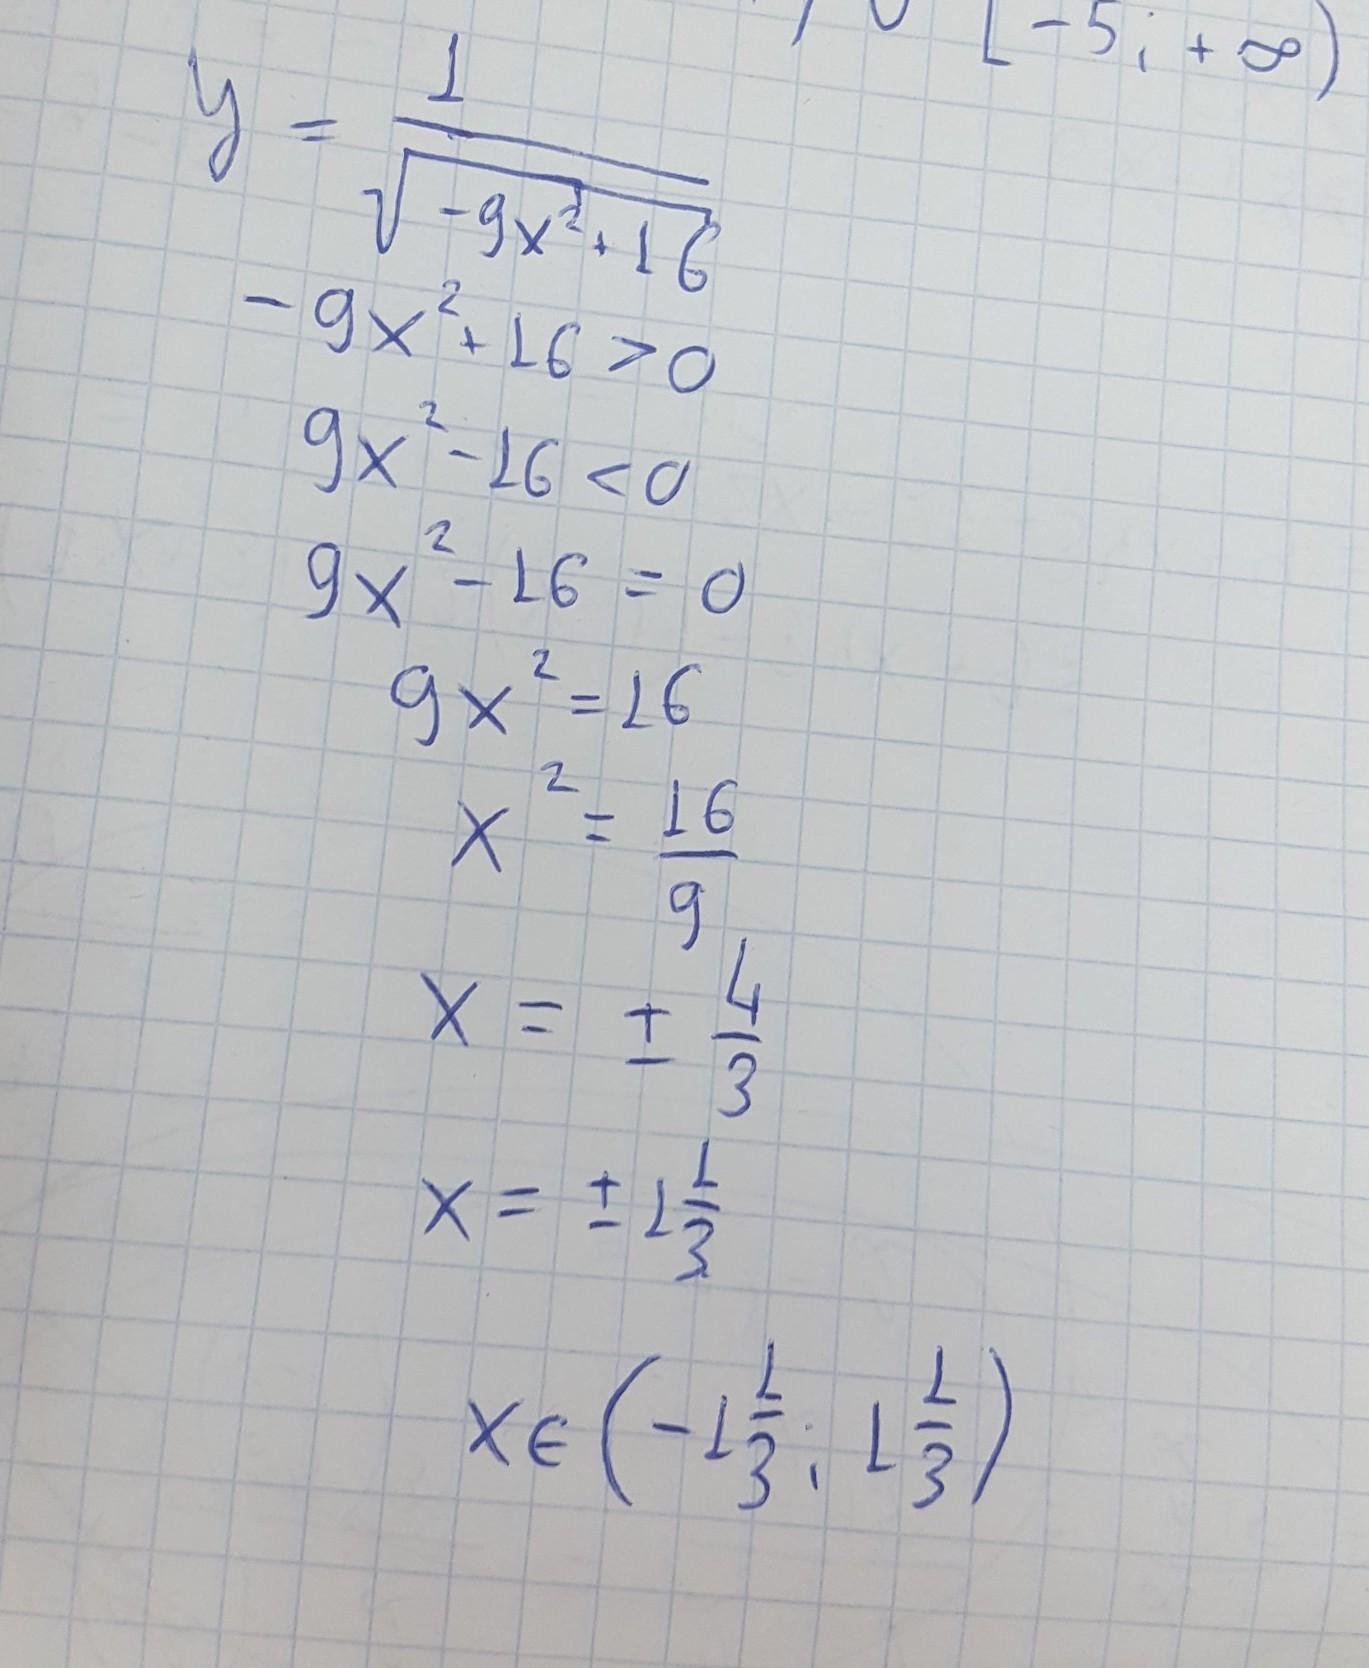 ) ∪ [-5; +∞)
y = 1/√(-9x²+16)
-9x²+16 > 0
9x²-16 < 0
9x²-16 = 0
9x² = 16
x² = 16/9
x = ± 4/3
x = ± 1 1/3
x ∈ (-1 1/3; 1 1/3)